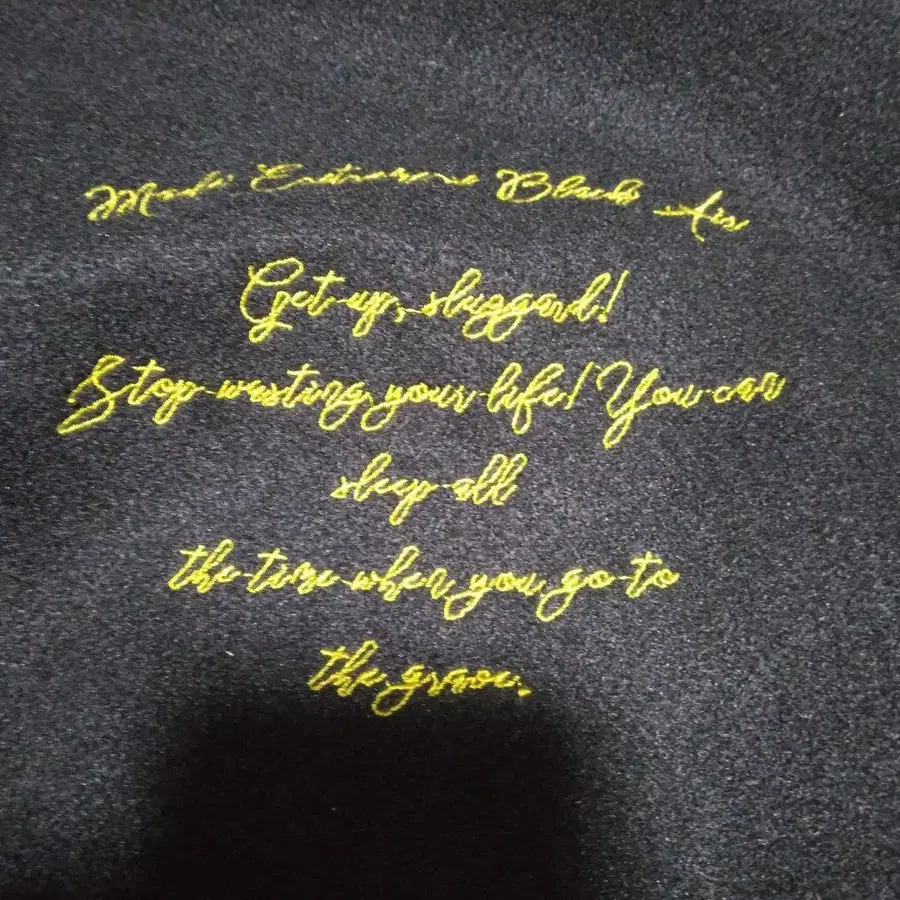 Black
Get up, sluggard!
Stop wasting your life! You can
sleep all
the time when you go to
the grave.